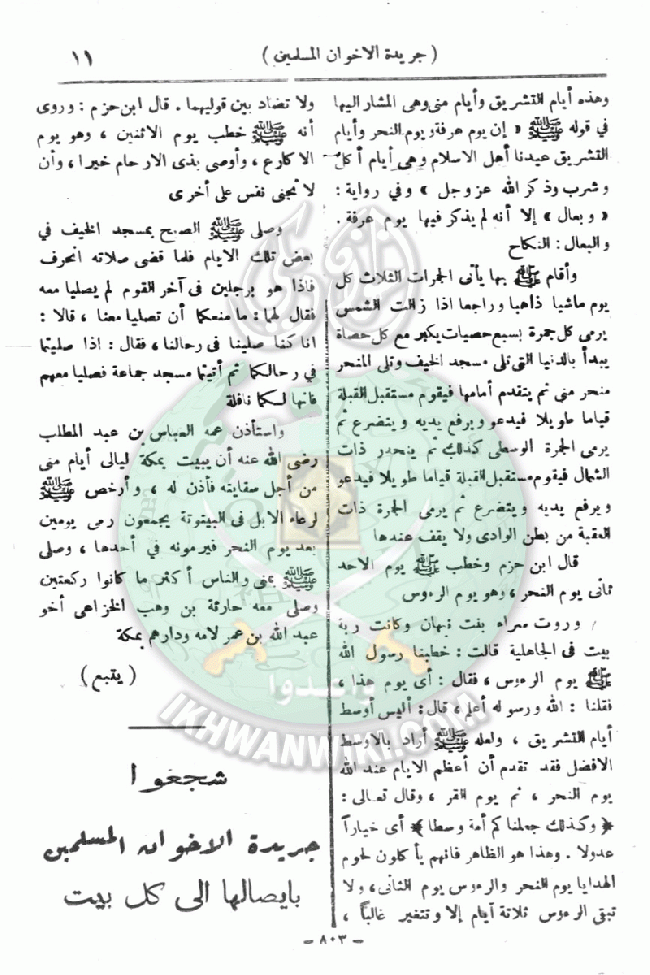 ( جريدة الاخوان المسلمين )
١١
وهذه أيام التشريق وأيام منى وهى المشار اليها
في قوله ﷺ « إن يوم عرفة ويوم النحر وأيام
التشريق عيدنا أهل الاسلام وهى أيام أكل
وشرب وذكر الله عز وجل » وفي رواية :
« وبعال » إلا أنه لم يذكر فيها يوم عرفة .
والبعال : النكاح
وأقام ﷺ بها يأتى الجمرات الثلاث كل
يوم ماشيا ذاهبا وراجعا اذا زالت الشمس
يرمى كل جمرة بسبع حصيات يكبر مع كل حصاة
يبدأ بالدنيا التى تلى مسجد الخيف وتلى المنحر
منحر منى ثم يتقدم أمامها فيقوم مستقبل القبلة
قياما طويلا فيدعو ويرفع يديه ويتضرع ثم
يرمى الجمرة الوسطى كذلك ثم ينحدر ذات
الشمال فيقوم مستقبل القبلة قياما طويلا فيدعو
ويرفع يديه ويتضرع ثم يرمى الجمرة ذات
العقبة من بطن الوادى ولا يقف عندها
قال ابن حزم وخطب ﷺ يوم الاحد
ثانى يوم النحر ، وهو يوم الرءوس
وروت سراء بنت نبهان وكانت ربة
بيت فى الجاهلية قالت : خطبنا رسول الله
ﷺ يوم الرءوس ، فقال : أى يوم هذا ،
فقلنا : الله ورسوله أعلم ، قال : أليس أوسط
أيام التشريق ، ولعله ﷺ أراد بالاوسط
الافضل فقد تقدم أن أعظم الايام عند الله
يوم النحر ، ثم يوم القر ، وقال تعالى :
﴿ وكذلك جعلنا كم أمة وسطا ﴾ أى خياراً
عدولا . وهذا هو الظاهر فانهم يأكلون لحوم
الهدايا يوم النحر والرءوس يوم الثانى ، ولا
تبقى الرءوس ثلاثة أيام إلا وتتغير غالباً ،
ولا تضاد بين قوليهما . قال ابن حزم : وروى
أنه ﷺ خطب يوم الاثنين ، وهو يوم
الاكارع ، وأوصى بذى الارحام خيرا ، وأن
لا تجنى نفس على أخرى
وصلى ﷺ الصبح بمسجد الخيف في
بعض تلك الايام فلما قضى صلاته انحرف
فاذا هو برجلين فى آخر القوم لم يصليا معه
فقال لهما : ما منعكما أن تصليا معنا ، قالا :
انا كنا صلينا فى رحالنا ، فقال : اذا صليتما
في رحالكما ثم أتيتما مسجد جماعة فصليا معهم
فانها لكما نافلة
واستأذن عمه العباس بن عبد المطلب
رضى الله عنه أن يبيت بمكة ليالى أيام منى
من أجل سقايته فأذن له ، وأرخص ﷺ
لرعاء الابل فى البيتوتة يجمعون رمى يومين
بعد يوم النحر فيرمونه في أحدها ، وصلى
ﷺ بمنى والناس أكثر ما كانوا ركعتين
وصلى معه حارثة بن وهب الخزاعى أخو
عبد الله بن عمر لامه ودارهم بمكة
( يتبع )
شجعوا
جريدة الاخوان المسلمين
بايصالها الى كل بيت
- ٨٠٣ -
وأعدوا
IKHWANWIKI.COM